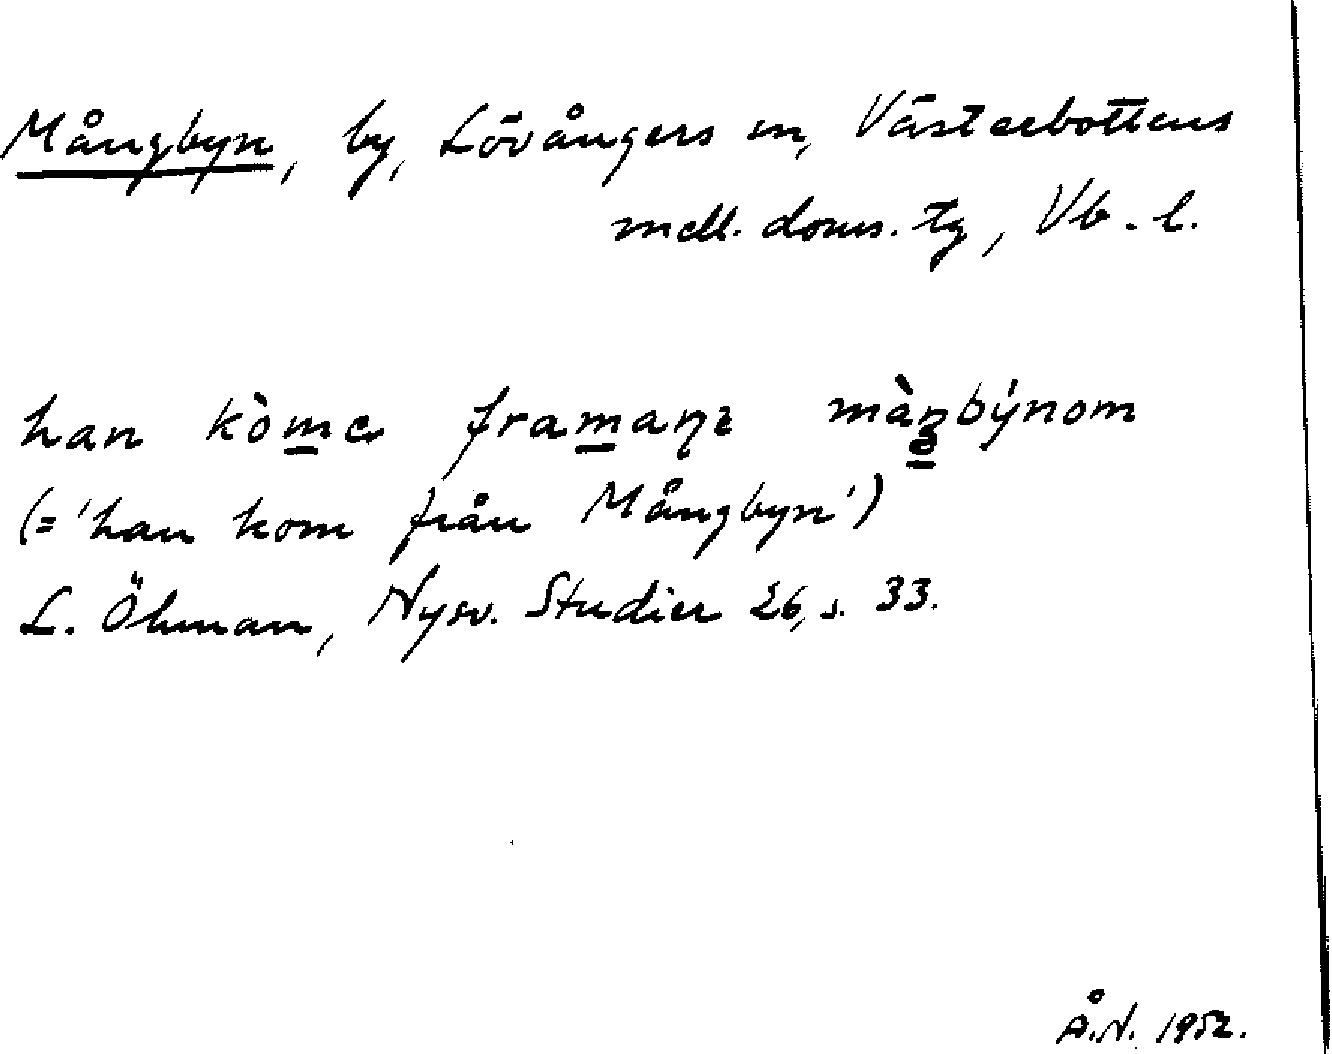 Mångbyn, by, Lövångers sn, Västerbottens
mell. doms. tg, Vb. l.
han kòme framaŋz màŋbýnom
(= 'han kom från Mångbyn')
L. Öhman, Nysv. Studier 26, s. 33.
Å.N. 1952.